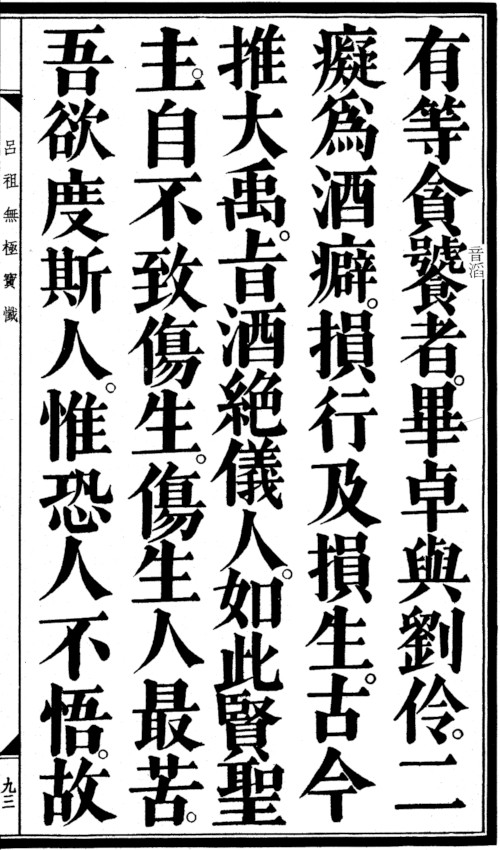 有等貪饕者。畢卓與劉伶。二
音滔
癡為酒癖。損行及損生。古今
推大禹。旨酒絕儀人。如此賢聖
主。自不致傷生。傷生人最苦。
吾欲度斯人。惟恐人不悟。故
呂祖無極寶懺
九三